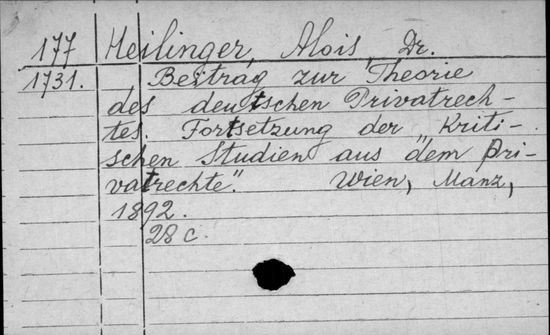 177 Heilinger, Alois, Dr.
1731. Beitrag zur Theorie
des deutschen Privatrech-
tes. Fortsetzung der „Kriti-
schen Studien aus dem Pri-
vatrechte". Wien, Manz,
1892.
28 c.